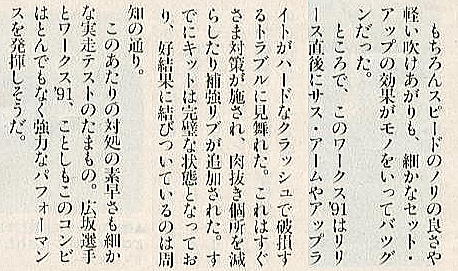 もちろんスピードのノリの良さや
軽い吹けあがりも、細かなセット・
アップの効果がモノをいってバッグ
ンだった。
ところで、このワークス'91はリリ
ース直後にサス・アームやアップラ
イトがハードなクラッシュで破損す
るトラブルに見舞れた。これはすぐ
さま対策が施され、肉抜き個所を減
らしたり補強リブが追加された。す
でにキットは完璧な状態となってお
り、好結果に結びついているのは周
知の通り。
このあたりの対処の素早さも細か
な実走テストのたまもの。広坂選手
とワークス'91、ことしもこのコンビ
はとんでもなく強力なパフォーマン
スを発揮しそうだ。